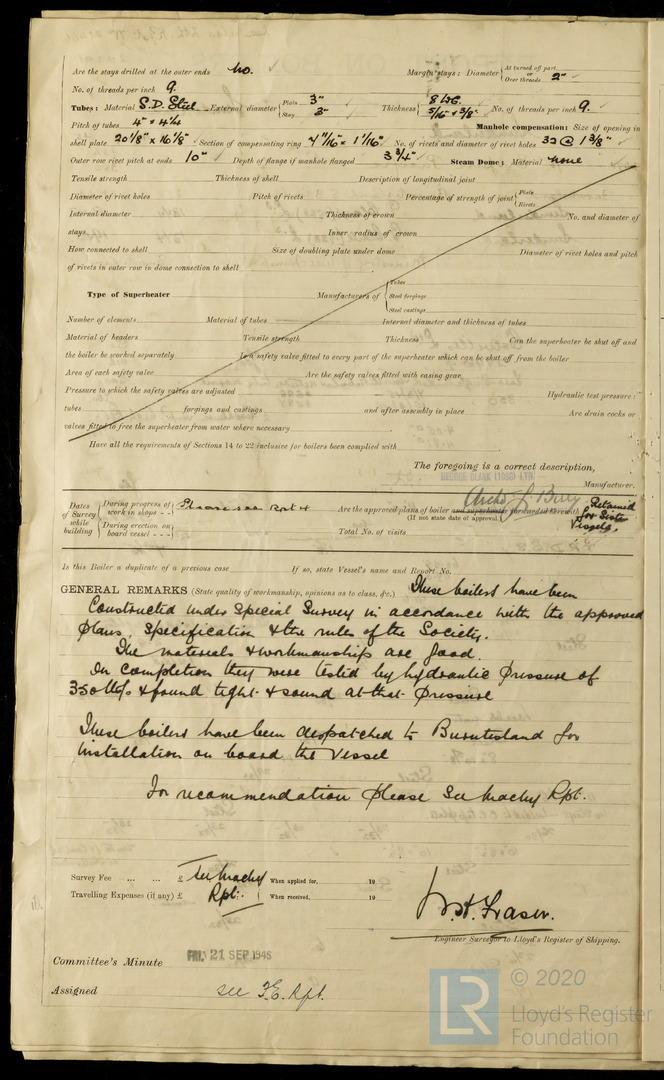 Are the stays drilled at the outer ends No. Margin stays: Diameter { At turned off part or Over threads 2"
No. of threads per inch 9.
Tubes: Material S.D. Steel External diameter { Plain 3" Stay 3" Thickness { 8 WG. 5/16" + 3/8" No. of threads per inch 9.
Pitch of tubes 4" x 4 1/4 Manhole compensation: Size of opening in
shell plate 20 1/8" x 16 1/8" Section of compensating ring 4 11/16" x 1 1/16" No. of rivets and diameter of rivet holes 32 @ 1 3/8"
Outer row rivet pitch at ends 10" Depth of flange if manhole flanged 3 3/4" Steam Dome: Material none
Tensile strength Thickness of shell Description of longitudinal joint
Diameter of rivet holes Pitch of rivets Percentage of strength of joint { Plate Rivets
Internal diameter Thickness of crown No. and diameter of
stays Inner radius of crown
How connected to shell Size of doubling plate under dome Diameter of rivet holes and pitch
of rivets in outer row in dome connection to shell
Type of Superheater Manufacturers of { Tubes Steel forgings Steel castings
Number of elements Material of tubes Internal diameter and thickness of tubes
Material of headers Tensile strength Thickness Can the superheater be shut off and
the boiler be worked separately Is a safety valve fitted to every part of the superheater which can be shut off from the boiler
Area of each safety valve Are the safety valves fitted with easing gear
Pressure to which the safety valves are adjusted Hydraulic test pressure:
tubes forgings and castings and after assembly in place Are drain cocks or
valves fitted to free the superheater from water where necessary
Have all the requirements of Sections 14 to 22 inclusive for boilers been complied with
The foregoing is a correct description,
GEORGE CLARK (1938) LTD.
Manufacturer.
Dates of Survey while building { During progress of work in shops - - } Please see Rpt 4 Are the approved plans of boiler and superheater forwarded herewith Retained for Sister Vessels.
{ During erection on board vessel - - - } (If not state date of approval.)
Total No. of visits
Is this Boiler a duplicate of a previous case If so, state Vessel's name and Report No.
GENERAL REMARKS (State quality of workmanship, opinions as to class, &c.) These boilers have been
Constructed under Special Survey in accordance with the approved
plans, specification & the rules of the Society.
The materials & workmanship are good.
On completion they were tested by hydraulic pressure of
350 lbs & found tight & sound at that pressure
These boilers have been despatched to Burntisland for
installation on board the Vessel
For recommendation please see Machy Rpt.
Survey Fee ... ... £ See Machy When applied for, 19
Travelling Expenses (if any) £ Rpt. When received, 19
W.H. Fraser.
Engineer Surveyor to Lloyd's Register of Shipping.
Committee's Minute FRI. 21 SEP 1945
Assigned see F.E. Rpt.
© 2020
Lloyd's Register
Foundation
LR